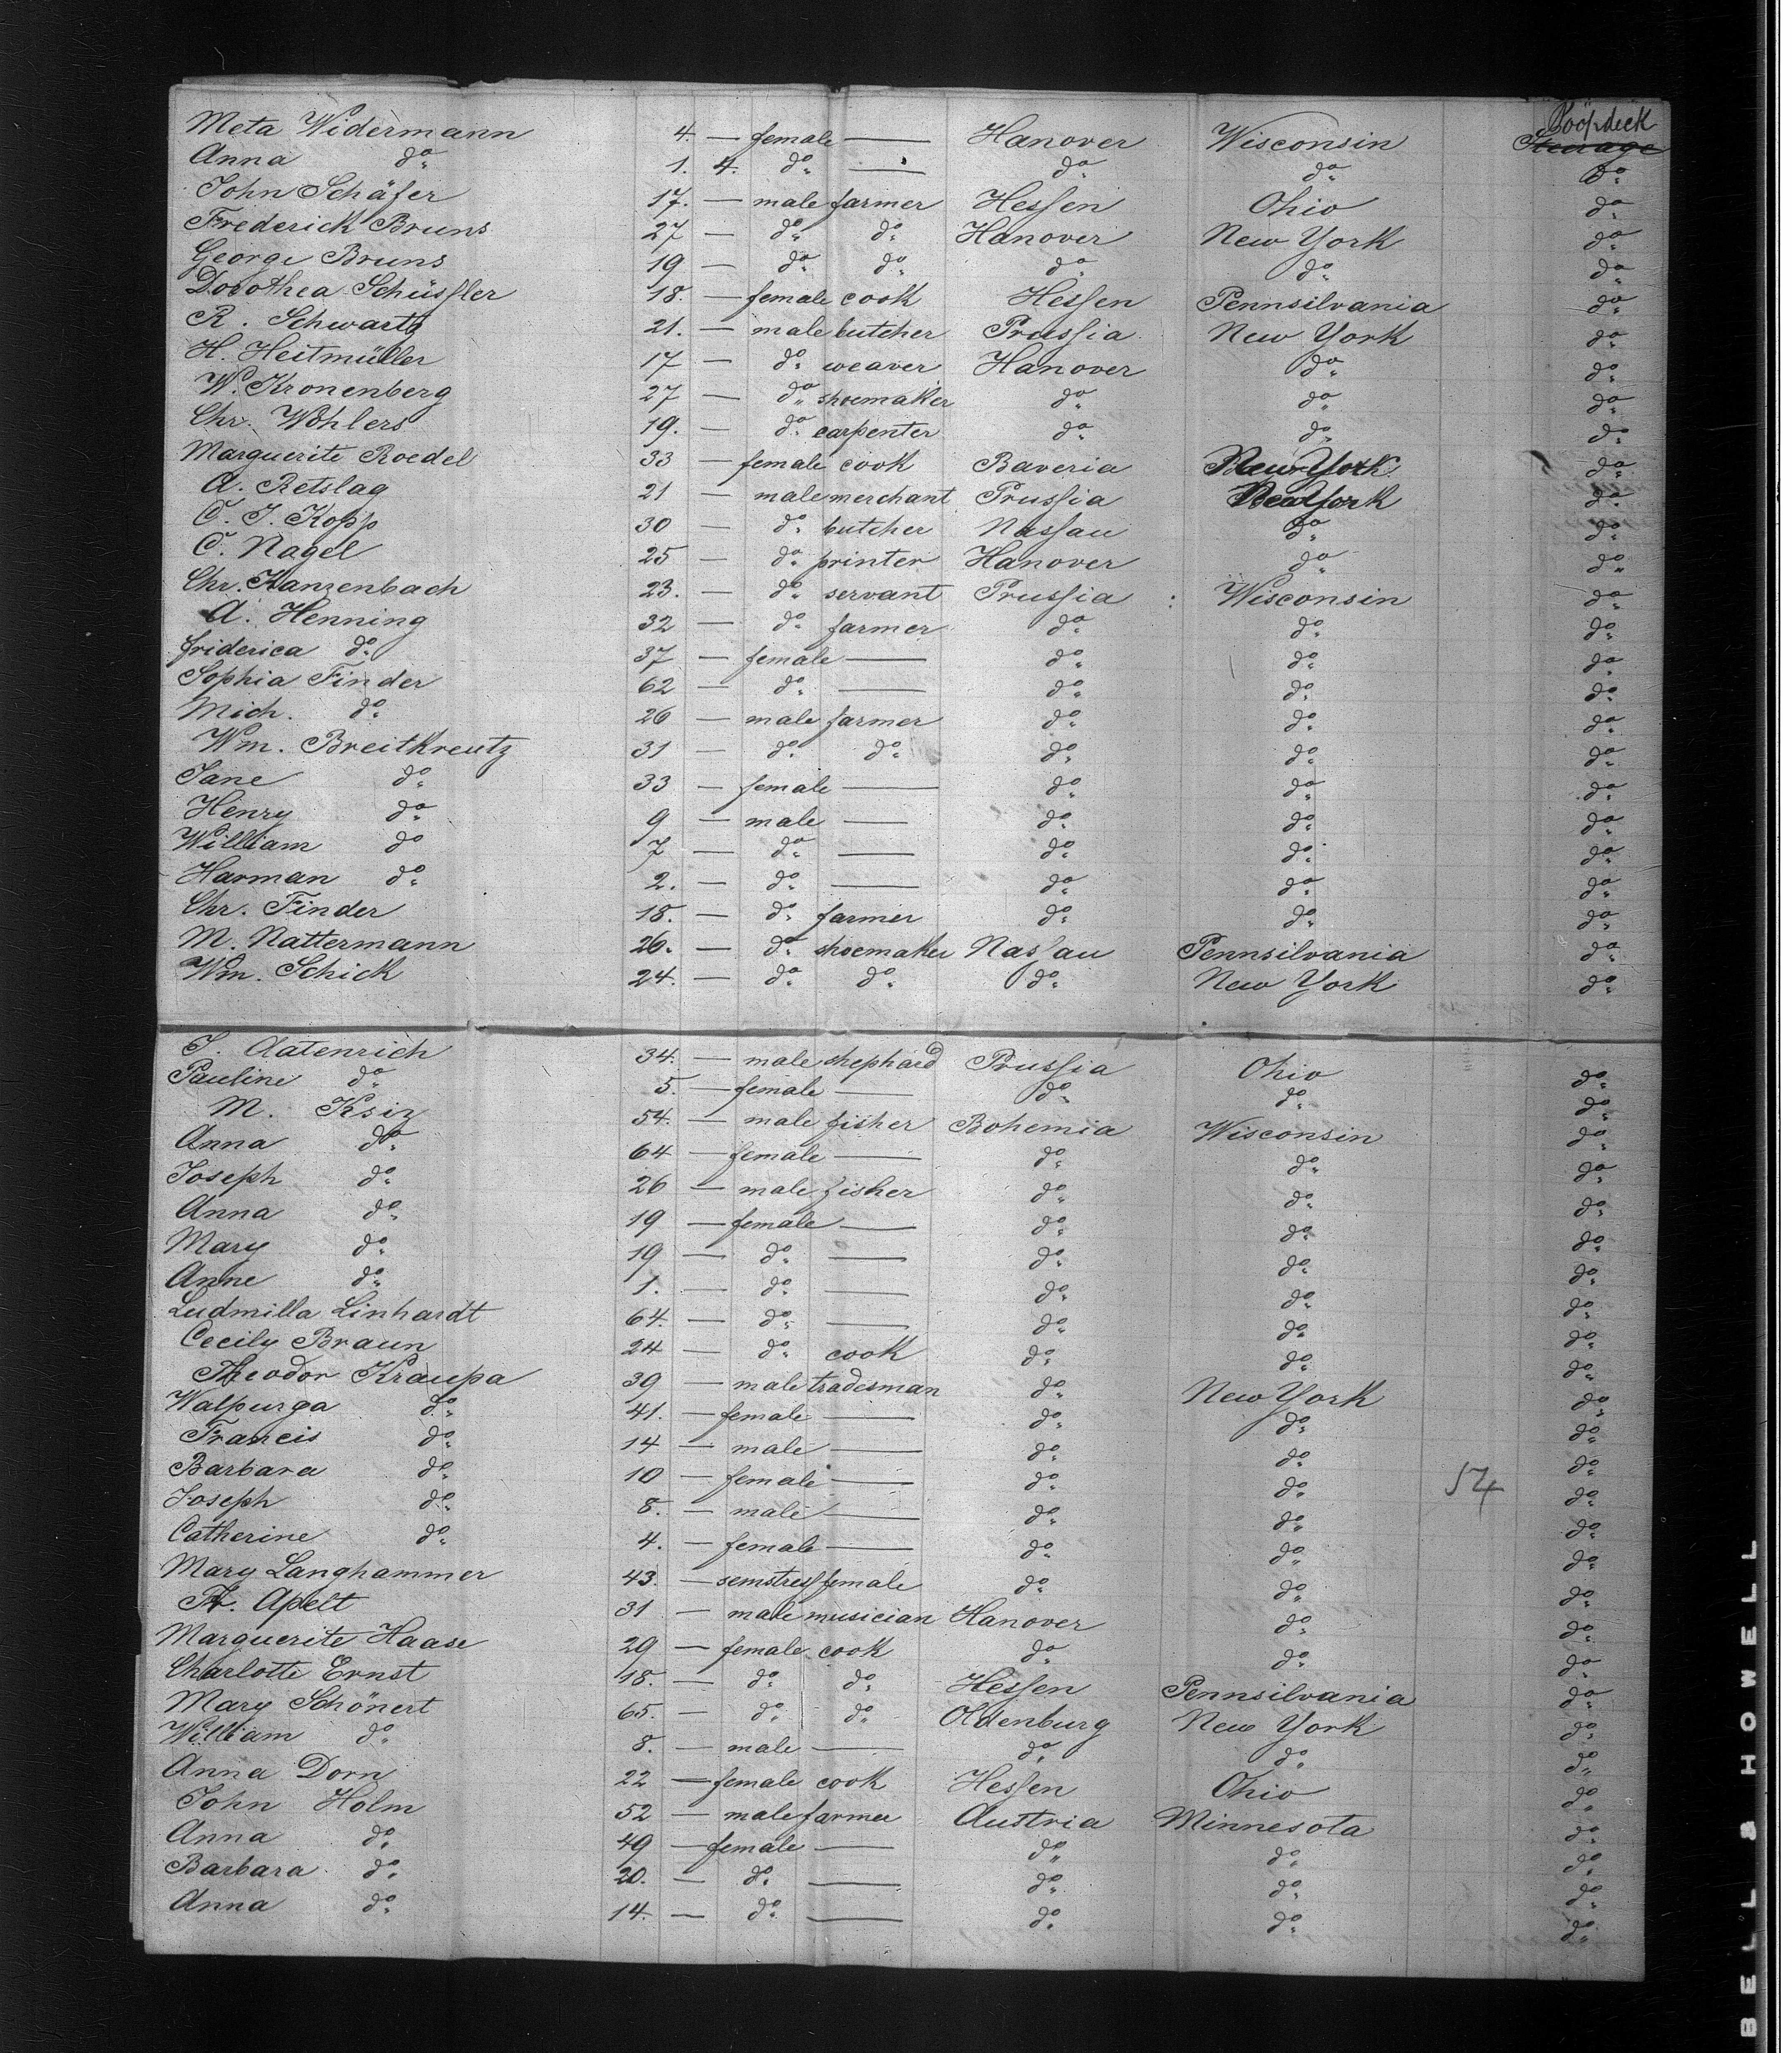 Poopdeck
Meta Widermann 4. — female — Hanover Wisconsin Steerage
Anna do 1. 4. do — do do do
John Schäfer 17. — male farmer Hessen Ohio do
Frederick Bruns 27 — do do Hanover New York do
George Bruns 19 — do do do do do
Dorothea Schüssler 18. — female cook Hessen Pennsilvania do
R. Schwartz 21. — male butcher Prussia New York do
H. Heitmüller 17 — do weaver Hanover do do
W. Kronenberg 27 — do shoemaker do do do
Chr. Wohlers 19. — do carpenter do do do
Marguerite Roedel 33 — female cook Baveria New York do
A. Retslag 21 — male merchant Prussia New York do
C. J. Kopp 30 — do butcher Nassau do do
C. Nagel 25 — do printer Hanover do do
Chr. Kanzenbach 23. — do servant Prussia : Wisconsin do
A. Henning 32 — do farmer do do do
friderica do 37 — female — do do do
Sophia Finder 62 — do — do do do
Mich. do 26 — male farmer do do do
Wm. Breitkreutz 31 — do do do do do
Jane do 33 — female — do do do
Henry do 9 — male — do do do
William do 7 — do — do do do
Harman do 2. — do — do do do
Chr. Finder 18. — do farmer do do do
M. Nattermann 26. — do shoemaker Nassau Pennsilvania do
Wm. Schick 24. — do do do New York do
J. Aatenrich 34. — male shephard Prussia Ohio do
Pauline do 5. — female — do do do
M. Ksiz 54. — male fisher Bohemia Wisconsin do
Anna do 64 — female — do do do
Joseph do 26 — male fisher do do do
Anna do 19 — female — do do do
Mary do 19 — do — do do do
Anne do 1. — do — do do do
Ludmilla Linhardt 64. — do — do do do
Cecily Braun 24 — do cook do do do
Theodor Kraupa 39 — male tradesman do New York do
Walpurga do 41. — female — do do do
Francis do 14 — male — do do do
Barbara do 10 — female — do do 54 do
Joseph do 8. — male — do do do
Catherine do 4. — female — do do do
Mary Langhammer 43. — semstress female do do do
Fr. Apelt 31 — male musician Hanover do do
Marguerite Haase 29 — female cook do do do
Charlotte Ernst 18. — do do Hessen Pennsilvania do
Mary Schönert 65. — do do Oldenburg New York do
William do 8. — male — do do do
Anna Dorn 22 — female cook Hessen Ohio do
John Holm 52 — male farmer Austria Minnesota do
Anna do 49 — female — do do do
Barbara do 20. — do — do do do
Anna do 14. — do — do do do
BELL & HOWELL